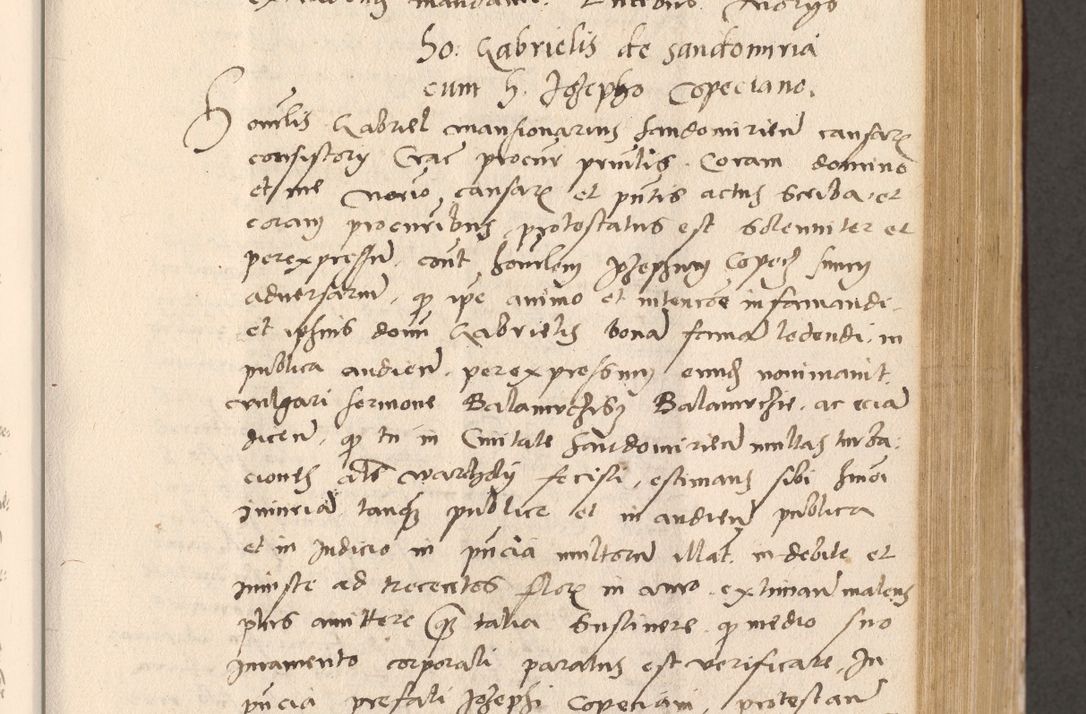 Ho. Gabrielis de Sandomiria
cum h. Josepho Copeciano.
Honorabilis Gabriel mansionarius Sandomirien causarum
consistory Crac procur priulis. Coram domino
et me notario causarum et pntis actus scriba et
coram procuribus protestatus est solenniter et
perexpressum cont honorabilem Josephum Copecz suum
adversarium, qz ipe animo et intencoe infamandi
et ipsius domi Gabrielis bonam famam ledendi, in
publica audien. perexpressum eundem nominavit
vulgari sermone Balamuthi Balamuthie, ac eciam
dicen, qz tu in Civitate Sandomirien multas turba-
ciones als warcholy fecisti, estimans sibi hmoi
iniuriam tanquam publice et in audien publica
et in Judicio in pncia multorum illat. indebite et
iniuste ad trecentos flor in auro. extiman malens
plus amittere quam talia sustinere, qz medio suo
iuramento corporali paratus est verificare. In
pncia prefati Josephi Copeciani, protestan